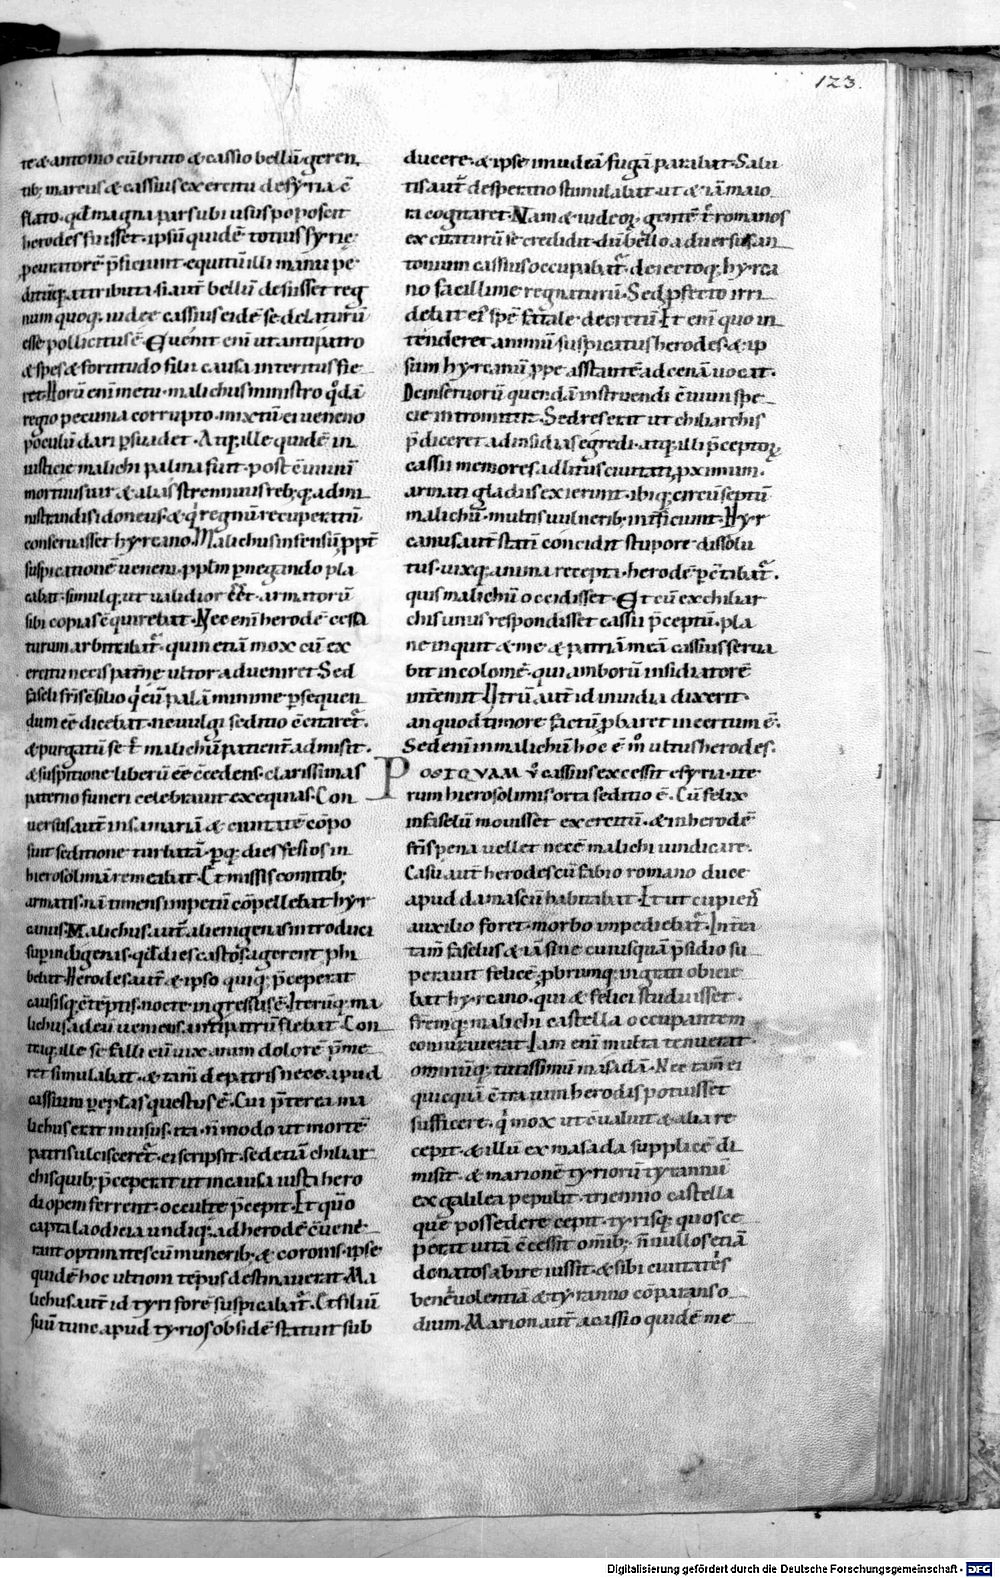 123.
te & antonio cū bruto & cassio bellū geren
tib; marcus & cassius exercitu de syria cō
flato. qđ magna pars ubi usus poposcit
herodes fuisset. ipsū quidē totius syrie
ꝓcuratorē p̄ficiunt. equitū illi manu pe
ditūq; attributa. si aut̄ bellū desiisset reg
num quoq; iudee cassius eidē se delaturū
esse pollicitus ē. Euenit eni ut antipatro
& spes & fortitudo filii causa interitus fie
ret. Horū eni metu. malichus ministro qđā
regio pecunia corrupto. mixtū ei ueneno
poculū dari ꝑsuadet. Atq; ille quidē in
iusticie malichi palma fuit. post cōuiuiū
mortuus uir & alias strennuus reb; q; admi
nistrandis idoneus. & q regnū recuperatū
conseruasset hyrcano. Malichus infensū ꝓpt̄
suspicationē ueneni. pplm ꝑnegando pla
cabat. simulq; ut ualidior e͞et. armatorū
sibi copias cōquirebat. Nec eni herodē cessa
turum arbitrabat̄. quin etiā mox cū ex
ercitu necis paterne ultor adueniret. Sed
faseli fr̄is cōsilio q cū palā minime ꝑsequen
dum e͞e dicebat. ne uulgi seditio cōcitaret̄.
& purgatū se t̄ malichū patient̄ admisit.
& suspitione liberū e͞e cōcedens. clarissimas
paterno funeri celebrauit exequias. Con
uersus aut̄ in samariā & ciuitatē cōpo
suit seditione turbatā. ꝑq; dies festos in
hierosolimā remeabat. Et missis comitib;
armatis. nā timens impetū cōpellebat hyr
canus. Malichus. aut̄ alienigenas introduci
sup indigenis. qđ dies castos agerent phi
bebat. Herodes aut̄ & ipso quiq; p̄ceperat
causisq; cōteptis. nocte ingressus ē. Iterūq; ma
lichus ad eū ueniens. antipatrū flebat. Con
traq; ille se falli cū uix animi dolorē p̄me
ret simulabat. & tam̄ de patris nece apud
cassium ꝑ eplas questus ē. Cui p̄terea ma
lichus erat inuisus. ita n̄ modo ut mortē
patris ulcisceret̄. ei scripsit. sed etiā chiliar
chis quib; p̄ceperat ut in causa iusta hero
di opem ferrent. occulte p̄cepit. Et qm̄
capta laodicia undiq; ad herodē cōuene
rant optimates cū munerib; & coronis. ipse
quidē hoc ultioni tēpus destinauerat. Ma
lichus aut̄ id tyri forē suspicabat̄. Et filiū
suū tunc apud tyrios obsidē statuit sub
ducere. & ipse in iudeā fugā parabat. Salu
tis aut̄ desperatio stimulabat. ut & iā maio
ra cogitaret. Nam & iudeoꝝ gentē t̄ romanos
excitaturū se credidit. dū bello aduersus an
tonium cassius occupabat̄. deiectoq; hyrca
no facillime regnaturū. Sed ꝓfecto irri
debat ei spē fatale decretū. Et eni quo in
tenderet animū suspicatus herodes. & ip
sum hyrcanū ꝓpe asstantē ad cenā uocat.
Dein seruorū quendā instruendi cōuiuii spe
cie intromittit. Sed re erat ut chiliarchis
p̄diceret ad insidias egredi. atq; illi p̄ceptoꝝ
cassii memores ad litus ciuitati ꝓximum.
armati gladiis exierunt. ibiq; circūseptū
malichū. multis uulnerib; int̄ficiunt. Hyr
canus aut̄ statī concidit stupore dissolu
tus. uixq; anima recepta. herodē ꝑcōtabat̄.
quis malichū occidisset. Et cū ex chiliar
chis unus respondisset cassii p̄ceptū. pla
ne inquit & me & patriā meā cassius serua
bit incolomē. qui amborū insidiatorē
int̄emit. Utrū aut̄ id inuidia dixerit.
an quod timore factū ꝓbaret incertum ē.
Sed eni in malichū hoc ē m ultus herodes.
POSTQVAM u cassius excessit e syria. ite
rum hierosolimis orta seditio ē. Cū felix
in faselū mouisset exercitū. & in herodē
fr̄is pena uellet necē malichi uindicare.
Casu aut̄ herodes cū fabio romano duce
apud damascū habitabat. Et ut cupien̄
auxilio foret. morbo impediebat̄. Int̄ea
tam̄ faselus & iā sine cuiusquā p̄sidio su
perauit felicē. ꝓbriumq; ingrati obicie
bat hyrcano. qui & felici studuisset.
fr̄emq; malichi castella occupantem
coniuuerat. Iam eni multa tenuerat.
omniūq; tutissimū masadā. Nec tam̄ ei
quicquā cōtra uim herodis potuisset
sufficere. q mox ut cōualuit & alia re
cepit. & illū ex masada supplicē di
misit. & marionē tyriorū tyrannū
ex galilea pepulit. triennio castella
que possedere cepit. tyrisq; quos ce
perat uitā cōcessit omib; n̄nullos etiā
donatos abire iussit. & sibi ciuitatis
beneuolentiā & tyranno cōparans o
dium. Marion aut̄ a cassio quidē me
Digitalisierung gefördert durch die Deutsche Forschungsgemeinschaft - DFG